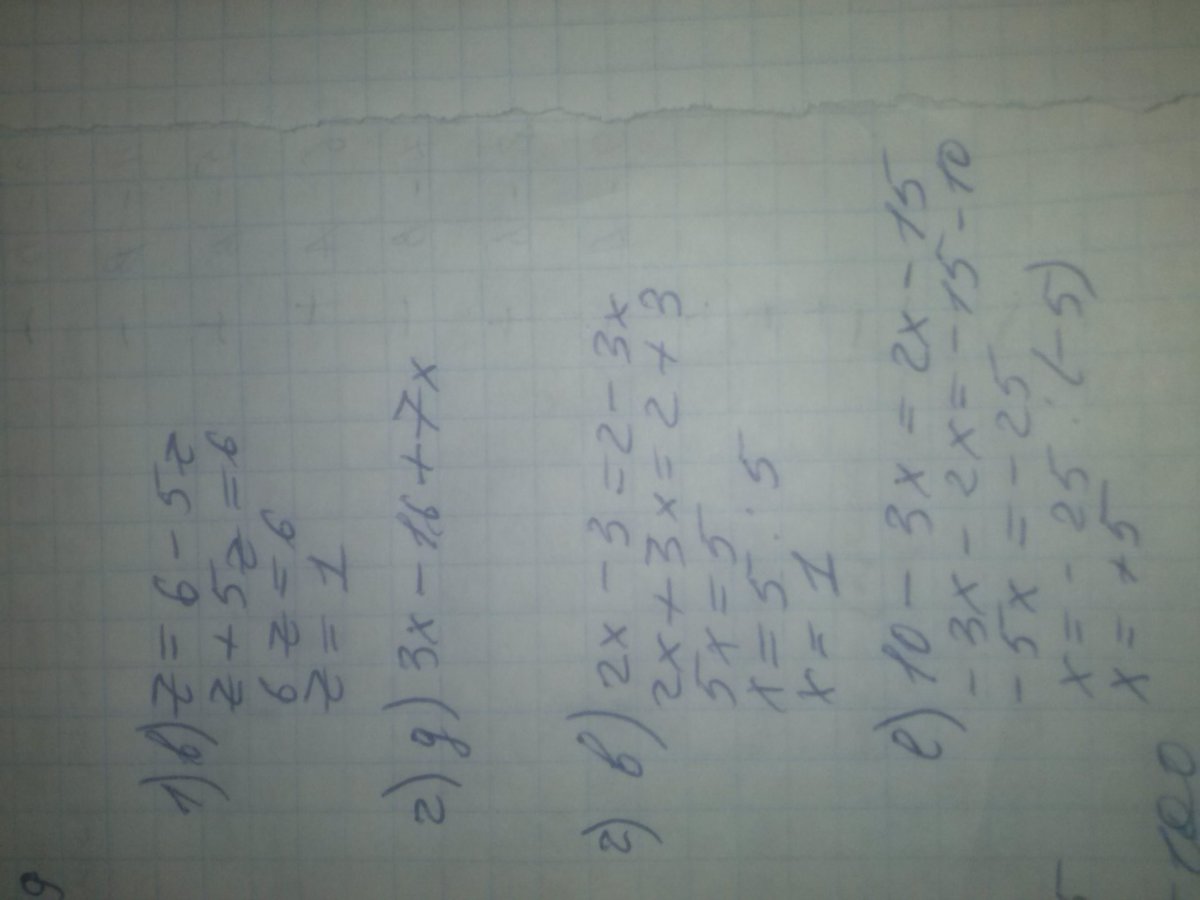 1) в) z = 6 - 5z
z + 5z = 6
6z = 6
z = 1
г) д) 3x - 16 + 7x
2) в) 2x - 3 = 2 - 3x
2x + 3x = 2 + 3
5x = 5
x = 5 : 5
x = 1
е) 10 - 3x = 2x - 15
- 3x - 2x = - 15 - 10
- 5x = - 25
x = - 25 : (- 5)
x = + 5